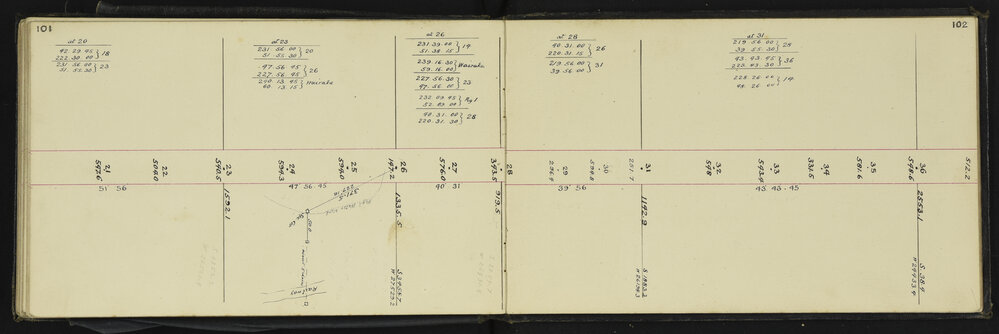 101
at 20
42 29 45 } 18
222 30 00
231 56 00 } 23
51 55 30
at 23
231 56 00 } 20
51 55 30
47 56 45 } 26
227 56 45
240 13 45 } Wairaka
60 13 15
at 26
231 39 00 } 19
51 38 15
239 16 30 } Wairaka
59 16 00
227 56 30 } 23
47 56 00
232 03 45
52 03 00
40 31 00 } 28
220 31 30
21
597.6
22
506.0
23
540.5
24
594.3
25
594.0
26
147.2
27
576.0
51 56
47 56 45
40 31
1592.1
1335.5
Railway
102
at 28
40 31 00 } 26
220 31 15
219 56 00 } 31
39 56 00
at 31
219 56 00 } 28
39 55 30
43 43 45 } 36
223 43 30
228 26 00 } 19
48 26 00
28
343.5
29
296.4
30
594.8
31
251.7
32
598
33
543.4
34
331.5
35
581.6
36
598.6
512.2
39 56
43 43 45
919.5
1142.9
2553.1